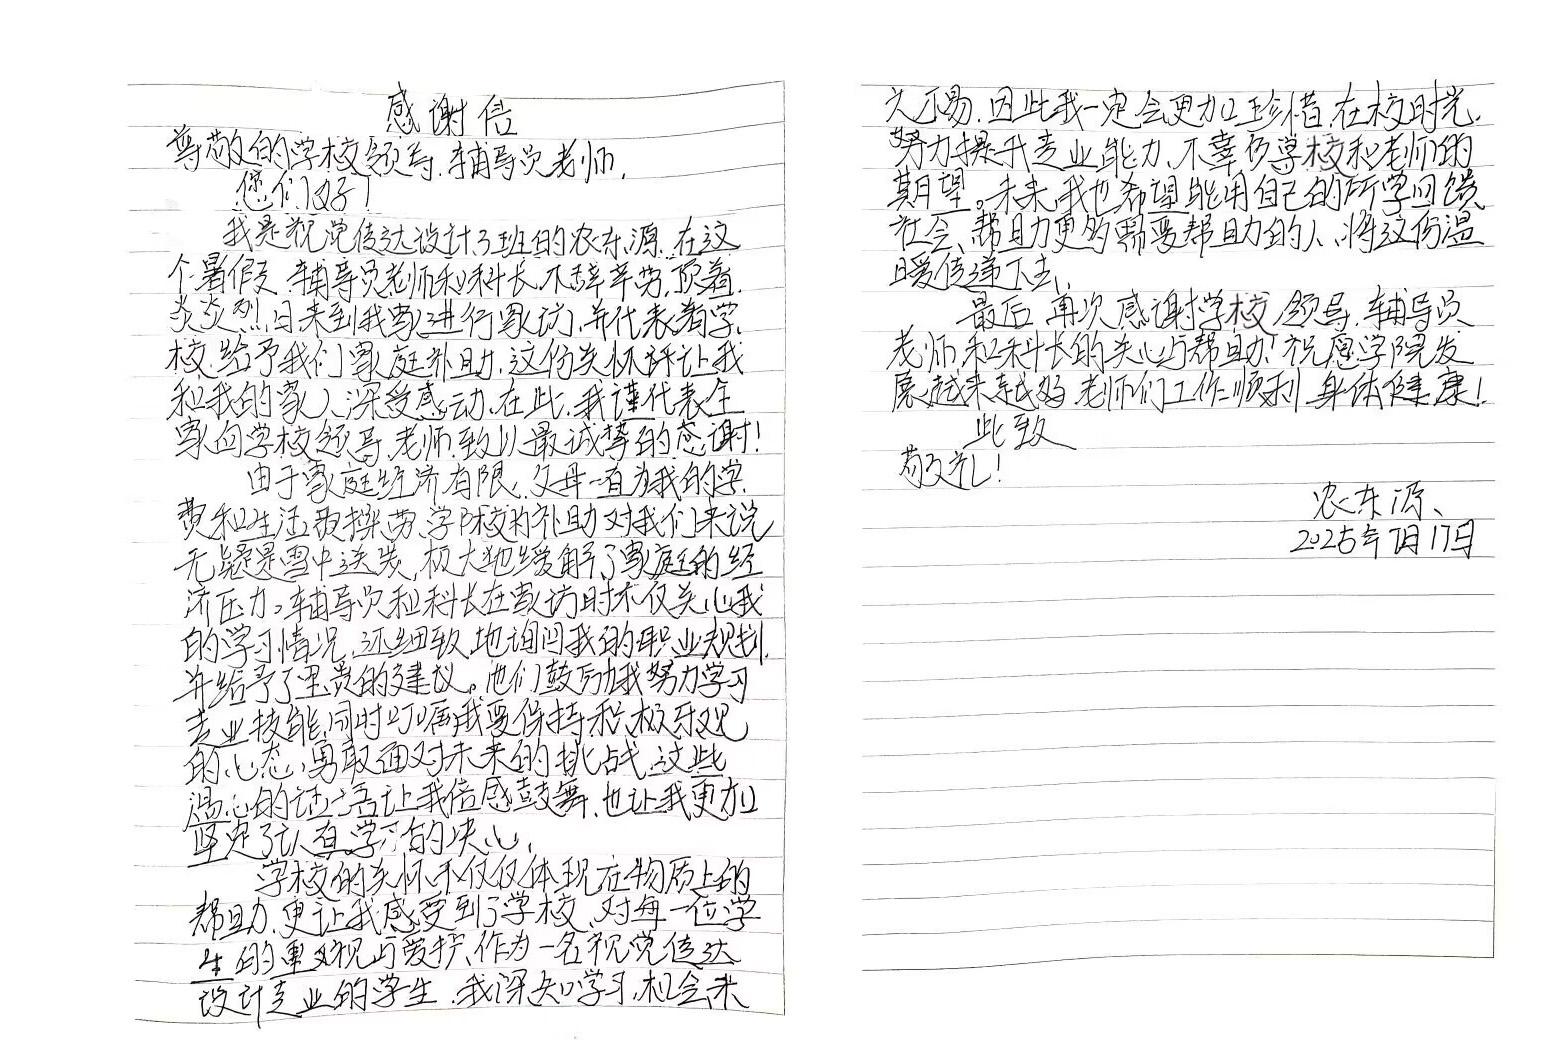 感谢信
尊敬的学校领导、辅导员老师,
您们好!
我是视觉传达设计3班的农东源,在这
个暑假,辅导员老师和科长不辞辛劳,顶着
炎炎烈日来到我家进行家访,并代表着学
校给予我们家庭补助,这份关怀让我
和我的家人深受感动,在此,我谨代表全
家向学校领导、老师致以最诚挚的感谢!
由于家庭经济有限,父母一直为我的学
费和生活费操劳,学院的补助对我们来说
无疑是雪中送炭,极大地缓解了家庭的经
济压力。辅导员和科长在家访时不仅关心我
的学习情况,还细致地询问我的职业规划,
并给予了宝贵的建议。他们鼓励我努力学习
专业技能,同时叮嘱我要保持积极乐观
的心态,勇敢面对未来的挑战,这些
温心的话语让我倍感鼓舞,也让我更加
坚定了认真学习的决心,
学校的关怀不仅仅体现在物质上的
帮助,更让我感受到了学校、对每一位学
生的重视与爱护,作为一名视觉传达
设计专业的学生,我深知学习机会来
之不易,因此我一定会更加珍惜在校时光,
努力提升专业能力,不辜负学校和老师的
期望。未来,我也希望能用自己的所学回馈
社会、帮助更多需要帮助的人,将这份温
暖传递下去、
最后,再次感谢学校领导、辅导员
老师和科长的关心与帮助!祝愿学院发
展越来越好,老师们工作顺利,身体健康!
此致
敬礼!
农东源、
2025年7月17日